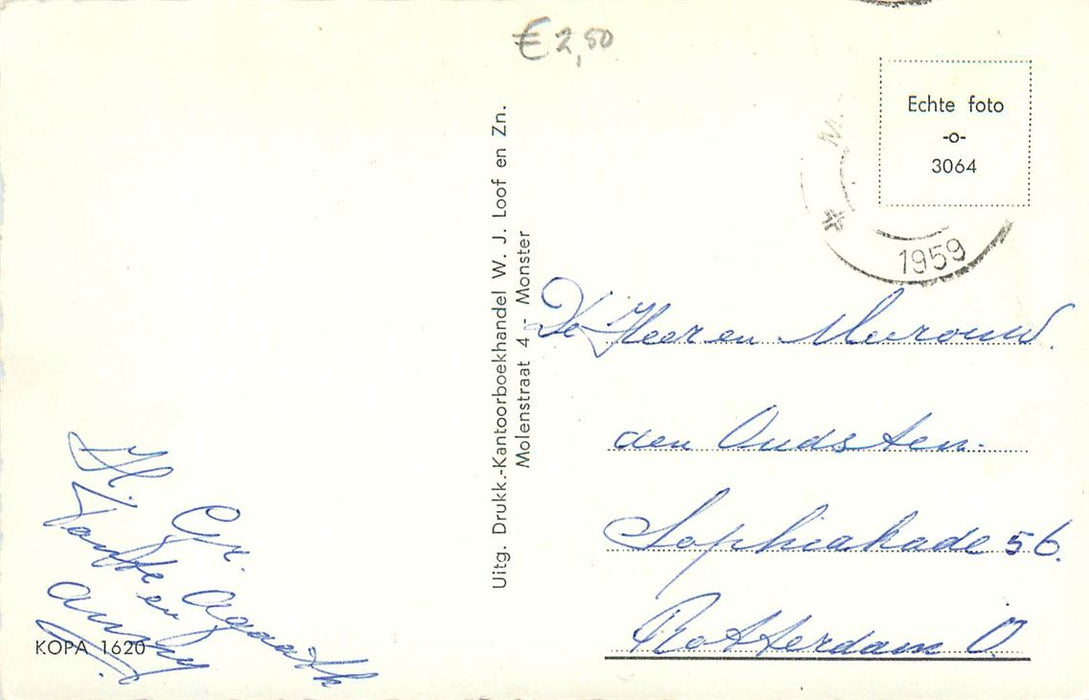 € 2,50
Echte foto
-o-
3064
1959
Uitg. Drukk.-Kantoorboekhandel W. J. Loof en Zn.
Molenstraat 4 - Monster
De Heer en Mevrouw.
den Oudsten.
Sophiakade 56.
Rotterdam O.
H. Gr.
en Agaath
KOPA 1620